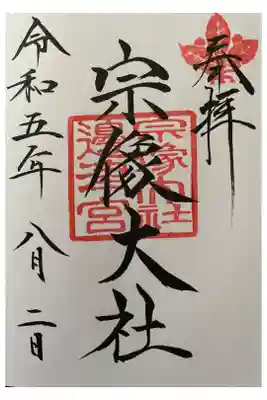 奉拝
宗像大社
宗像神社
邊津宮
令和五年八月二日